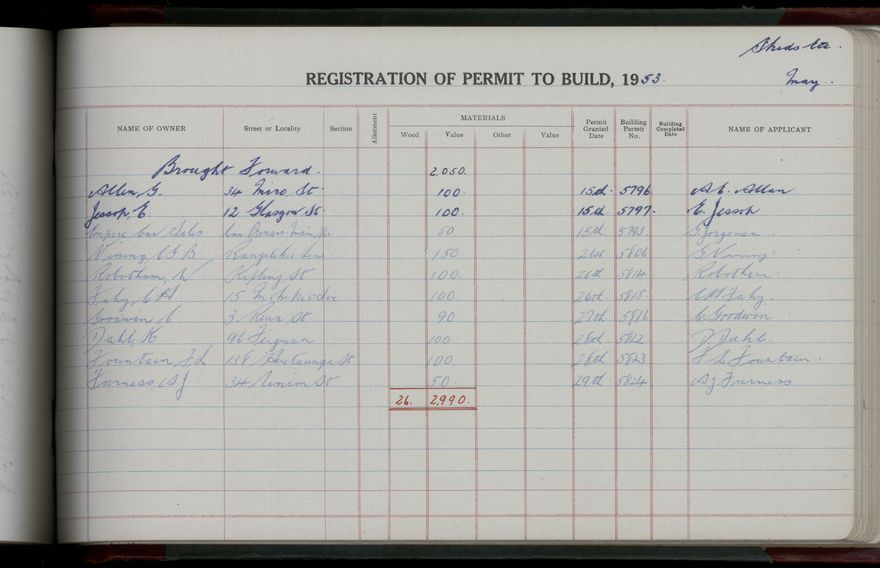 Sheds etc.
REGISTRATION OF PERMIT TO BUILD, 1953.
May.
NAME OF OWNER Street or Locality Section Allotment MATERIALS Wood Value Other Value Permit Granted Date Building Permit No. Building Completed Date NAME OF APPLICANT
Brought Forward. 2,050.
Allen, G. 34 Miro St. 100. 15th. 5796 A. E. Allan
Jessop, E. 12 Glasgow St. 100. 15th 5797. E. Jessop
Empire Car Sales. Cnr Main 50 15th 5793 G Jorgensen
Vining, C G B Rangitikei Line 150. 21st 5806 G Vining
Robotham, W Kipling St 100. 26th 5814 Robotham
Fahy, C H 15 100 26th 5815. C H Fahy.
Goodwin, C 3 Kewa St 90 27th 5816 C Goodwin
Dahl, K 96 Ferguson 100 28th 5822 Dahl.
Fountain, F L 138 St 100 28th 5823 F L Fountain.
Furness A J 34 Union St 50. 29th 5824 A J Furness
26. 2,990.